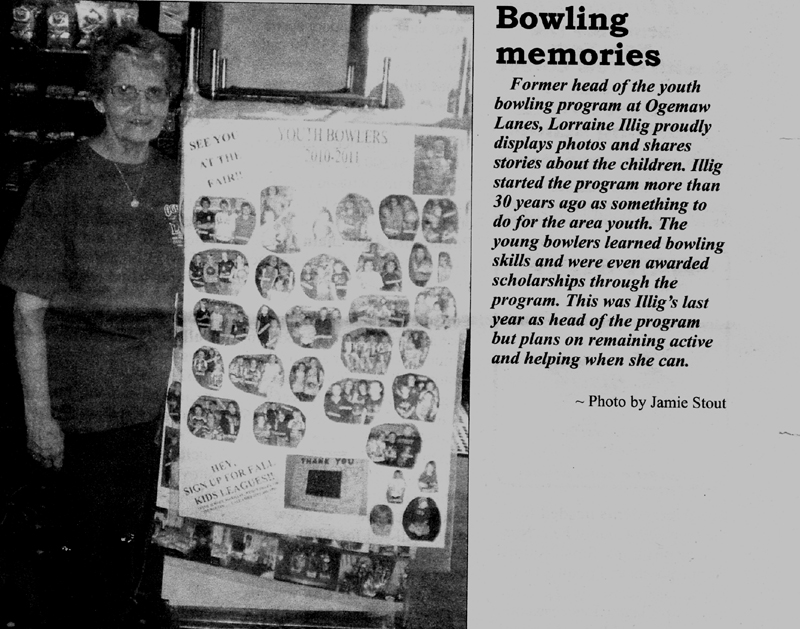 Bowling
memories
Former head of the youth
bowling program at Ogemaw
Lanes, Lorraine Illig proudly
displays photos and shares
stories about the children. Illig
started the program more than
30 years ago as something to
do for the area youth. The
young bowlers learned bowling
skills and were even awarded
scholarships through the
program. This was Illig's last
year as head of the program
but plans on remaining active
and helping when she can.
~ Photo by Jamie Stout
SEE YOU
AT THE
FAIR!!
YOUTH BOWLERS
2010-2011
HEY,
SIGN UP FOR FALL
KIDS LEAGUES!!
THANK YOU